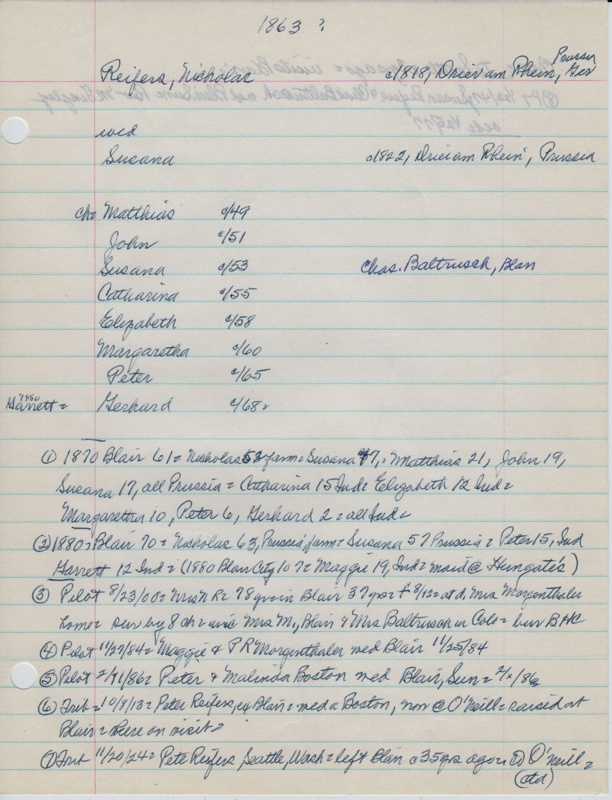 1863 ?
Reifers, Nicholas c1818, Drier am Rhein, Preussen, Ger
wed
Susana c1822, Drier am Rhein, Prussia
ch= Matthias c/49
John c/51
Susana c/53 Chas. Baltrusch, Blair
Catharina c/55
Elizabeth c/58
Margaretha c/60
Peter c/65
1880 Garrett = Gerhard c/68
① 1870 Blair 61= Nicholas 52 farm= Susana 47, = Matthias 21, John 19,
Susana 17, all Prussia = Catharina 15 Ind= Elizabeth 12 Ind=
Margarettha 10, Peter 6, Gerhard 2 = all Ind
② 1880= Blair 70 = Nicholas 63, Prussia, farm= Susana 57 Prussia= Peter 15, Ind
Garrett 12 Ind = (1880 Blair City 107 = Maggie 19, Ind= maid @ Hungate's)
③ Pilot 8/23/00= Mrs N R= 78 yrs in Blair 37 yrs = at d. Mrs. Morgenthaler
home= surv by 8 ch= inc Mrs M., Blair & Mrs Baltrusch in Colo= bur BHC
④ Pilot 11/27/84= Maggie & P R Morgenthaler wed Blair 11/25/84
⑤ Pilot 2/11/86= Peter & Malinda Boston wed Blair, Sun =
⑥ Trib = 10/8/13= Peter Reifers, ex Blair= wed a Boston, now @ O'Neill= raised at
Blair= here on visit
⑦ Trib 11/20/24= Pete Reifers, Seattle, Wash= left Blair c 35 yrs ago= O'Neill=
(ctd)